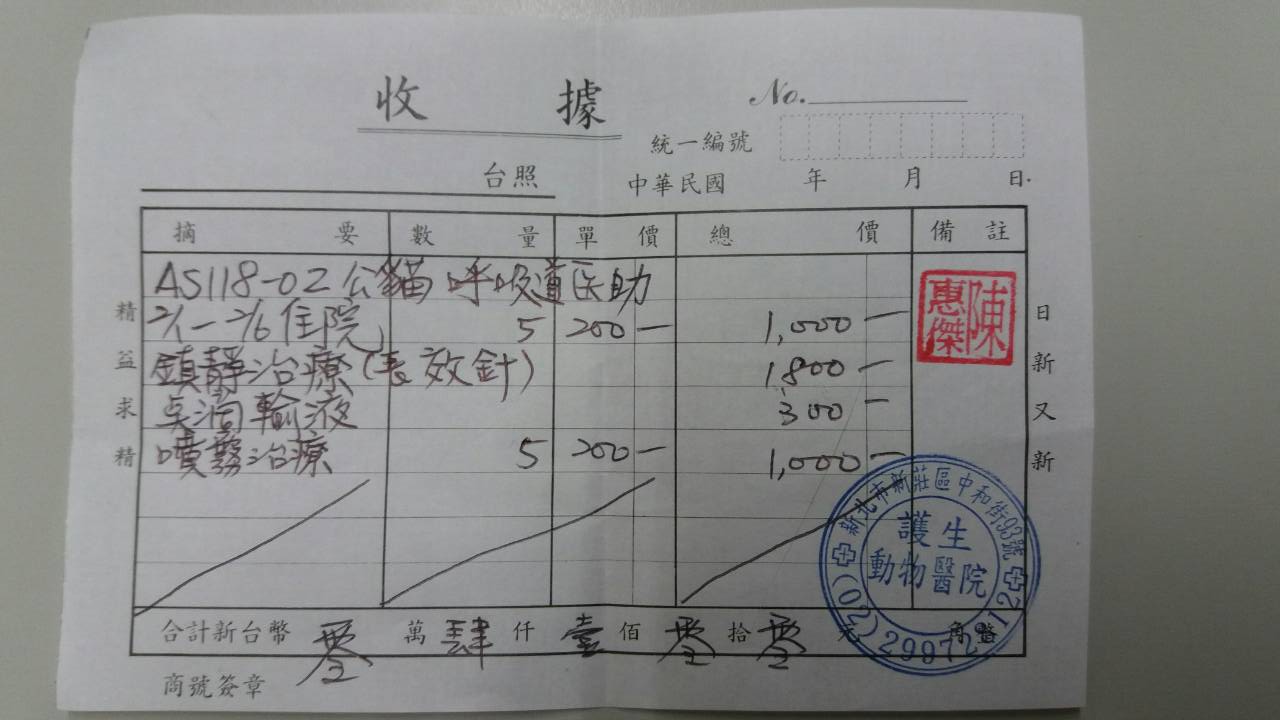 收據
No.
統一編號
台照
中華民國 年 月 日
摘要 數量 單價 總價 備註
AS118-02 公貓 呼吸道医助
2/1-2/6 住院 5 200- 1,000-
鎮靜治療(長效針) 1,800-
点滴輸液 300-
噴霧治療 5 200- 1,000-
精益求精
日新又新
陳惠傑
新北市新莊區中和街93號
護生
動物醫院
(02)29972912
合計新台幣 零 萬 肆 仟 壹 佰 零 拾 零 元 角整
商號簽章